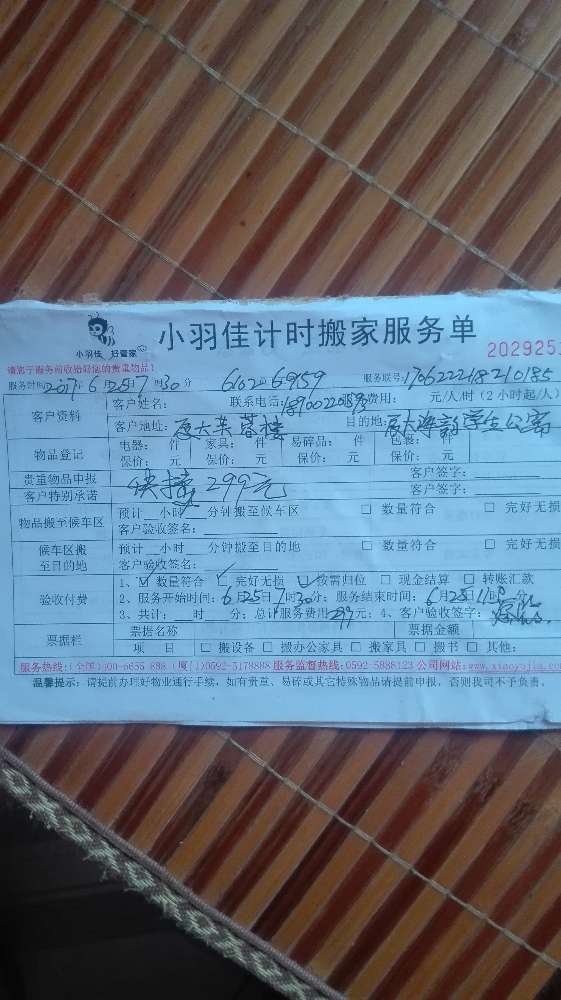 小羽佳计时搬家服务单
小羽佳 好管家
202925
请您于服务前收拾好您的贵重物品!
服务时间:2017年6月25日7时30分 服务联号:
客户资料 客户姓名: 联系电话: 费用: 元/人/时(2小时起/人)
客户地址:厦大芙蓉楼 目的地:厦大海韵学生公寓
物品登记 电器: 件 家具: 件 易碎品: 件 包裹:
保价: 元 保价: 元 保价: 元 保价: 元
贵重物品申报 客户签字:
客户特别承诺 快捷299元 客户签字:
物品搬至候车区 预计__小时__分钟搬至候车区 □ 数量符合 □ 完好无损
客户验收签名:
候车区搬至目的地 预计__小时__分钟搬至目的地 □ 数量符合 □ 完好无损
客户验收签名:
验收付费 1、☑ 数量符合 ☑ 完好无损 ☑ 按需归位 □ 现金结算 □ 转账汇款
2、服务开始时间:6月25日7时30分;服务结束时间:6月25日11时 分;
3、共计: 时 分;总计服务费用299元;4、客户验收签字:
票据栏 票据名称 票据金额
项 目 □ 搬设备 □ 搬办公家具 □ 搬家具 □ 搬书 □ 其他:
服务热线:(全国)400-6655-888 (厦门)0592-5178888 服务监督热线:0592-5888123 公司网站:www.xiaoyujia.com
温馨提示:请提前办理好物业通行手续,如有贵重、易碎或其它特殊物品请提前申报,否则我司不予负责。